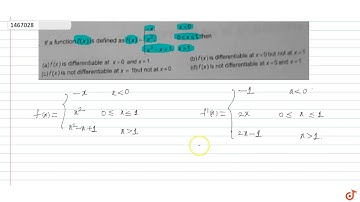 1467028
If a function f(x) is defined as f(x) = { -x, x<0
x², 0≤x≤1 then
x²-x+1, x>1
(a) f(x) is differentiable at x = 0 and x = 1
(b) f(x) is differentiable at x = 0 but not at x = 1
(c) f(x) is not differentiable at x = 1 but not at x = 0
(d) f(x) is not differentiable at x = 0 and x = 1
f(x) = { -x x<0
x² 0 ≤ x ≤ 1
x²-x+1 x>1
f'(x) = { -1 x<0
2x 0 ≤ x ≤ 1
2x-1 x>1.